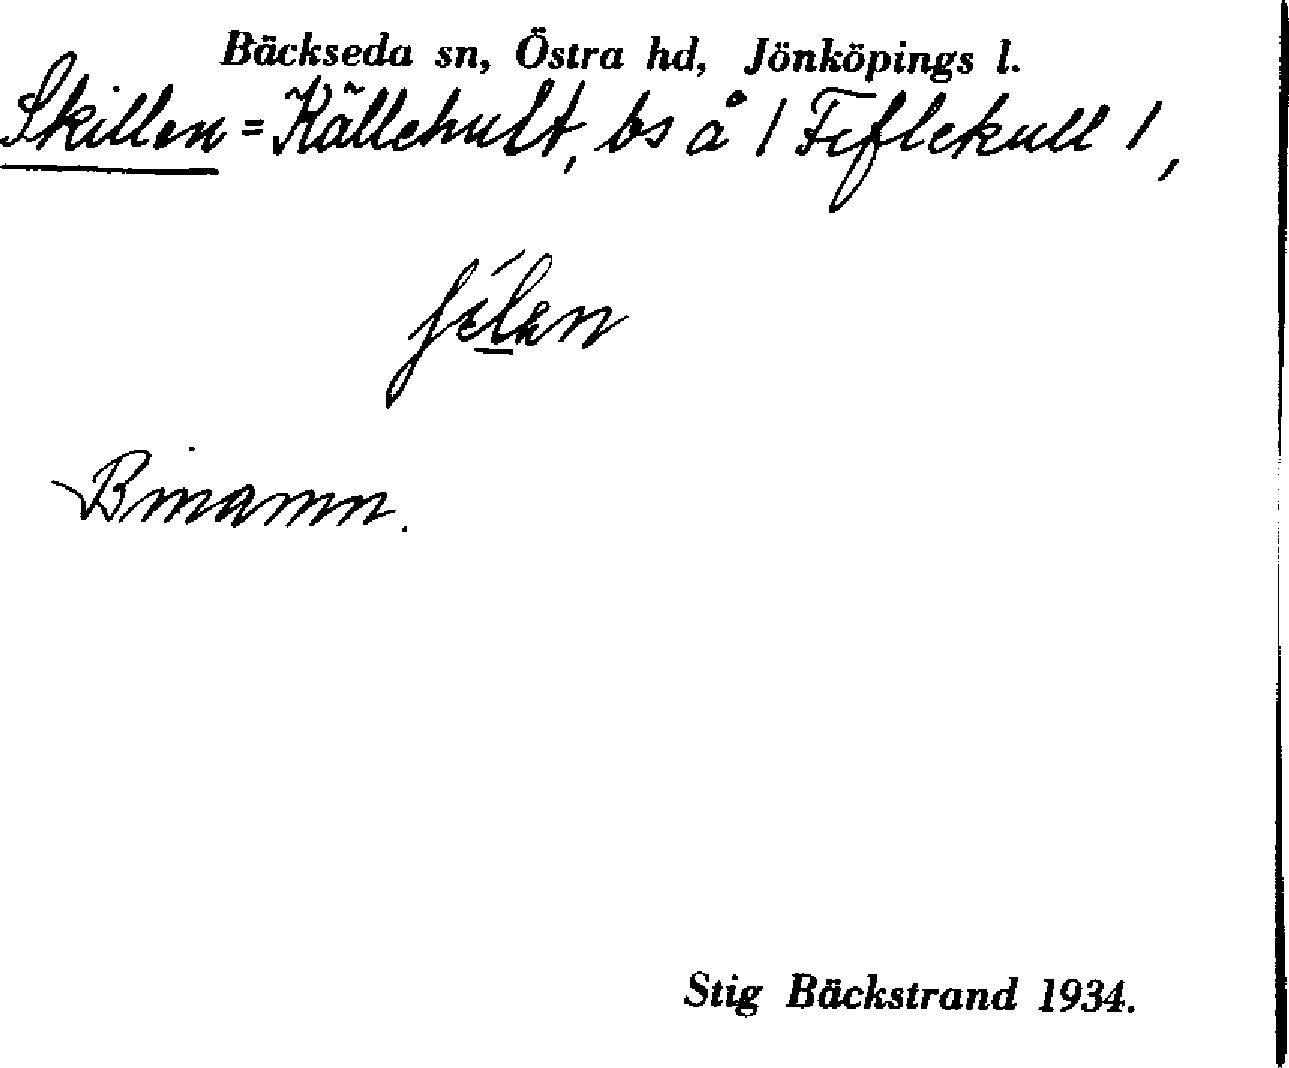 Bäckseda sn, Östra hd, Jönköpings l.
Skillen = Källehult, bs å / Fiflekull /,
Binamn.
Stig Bäckstrand 1934.